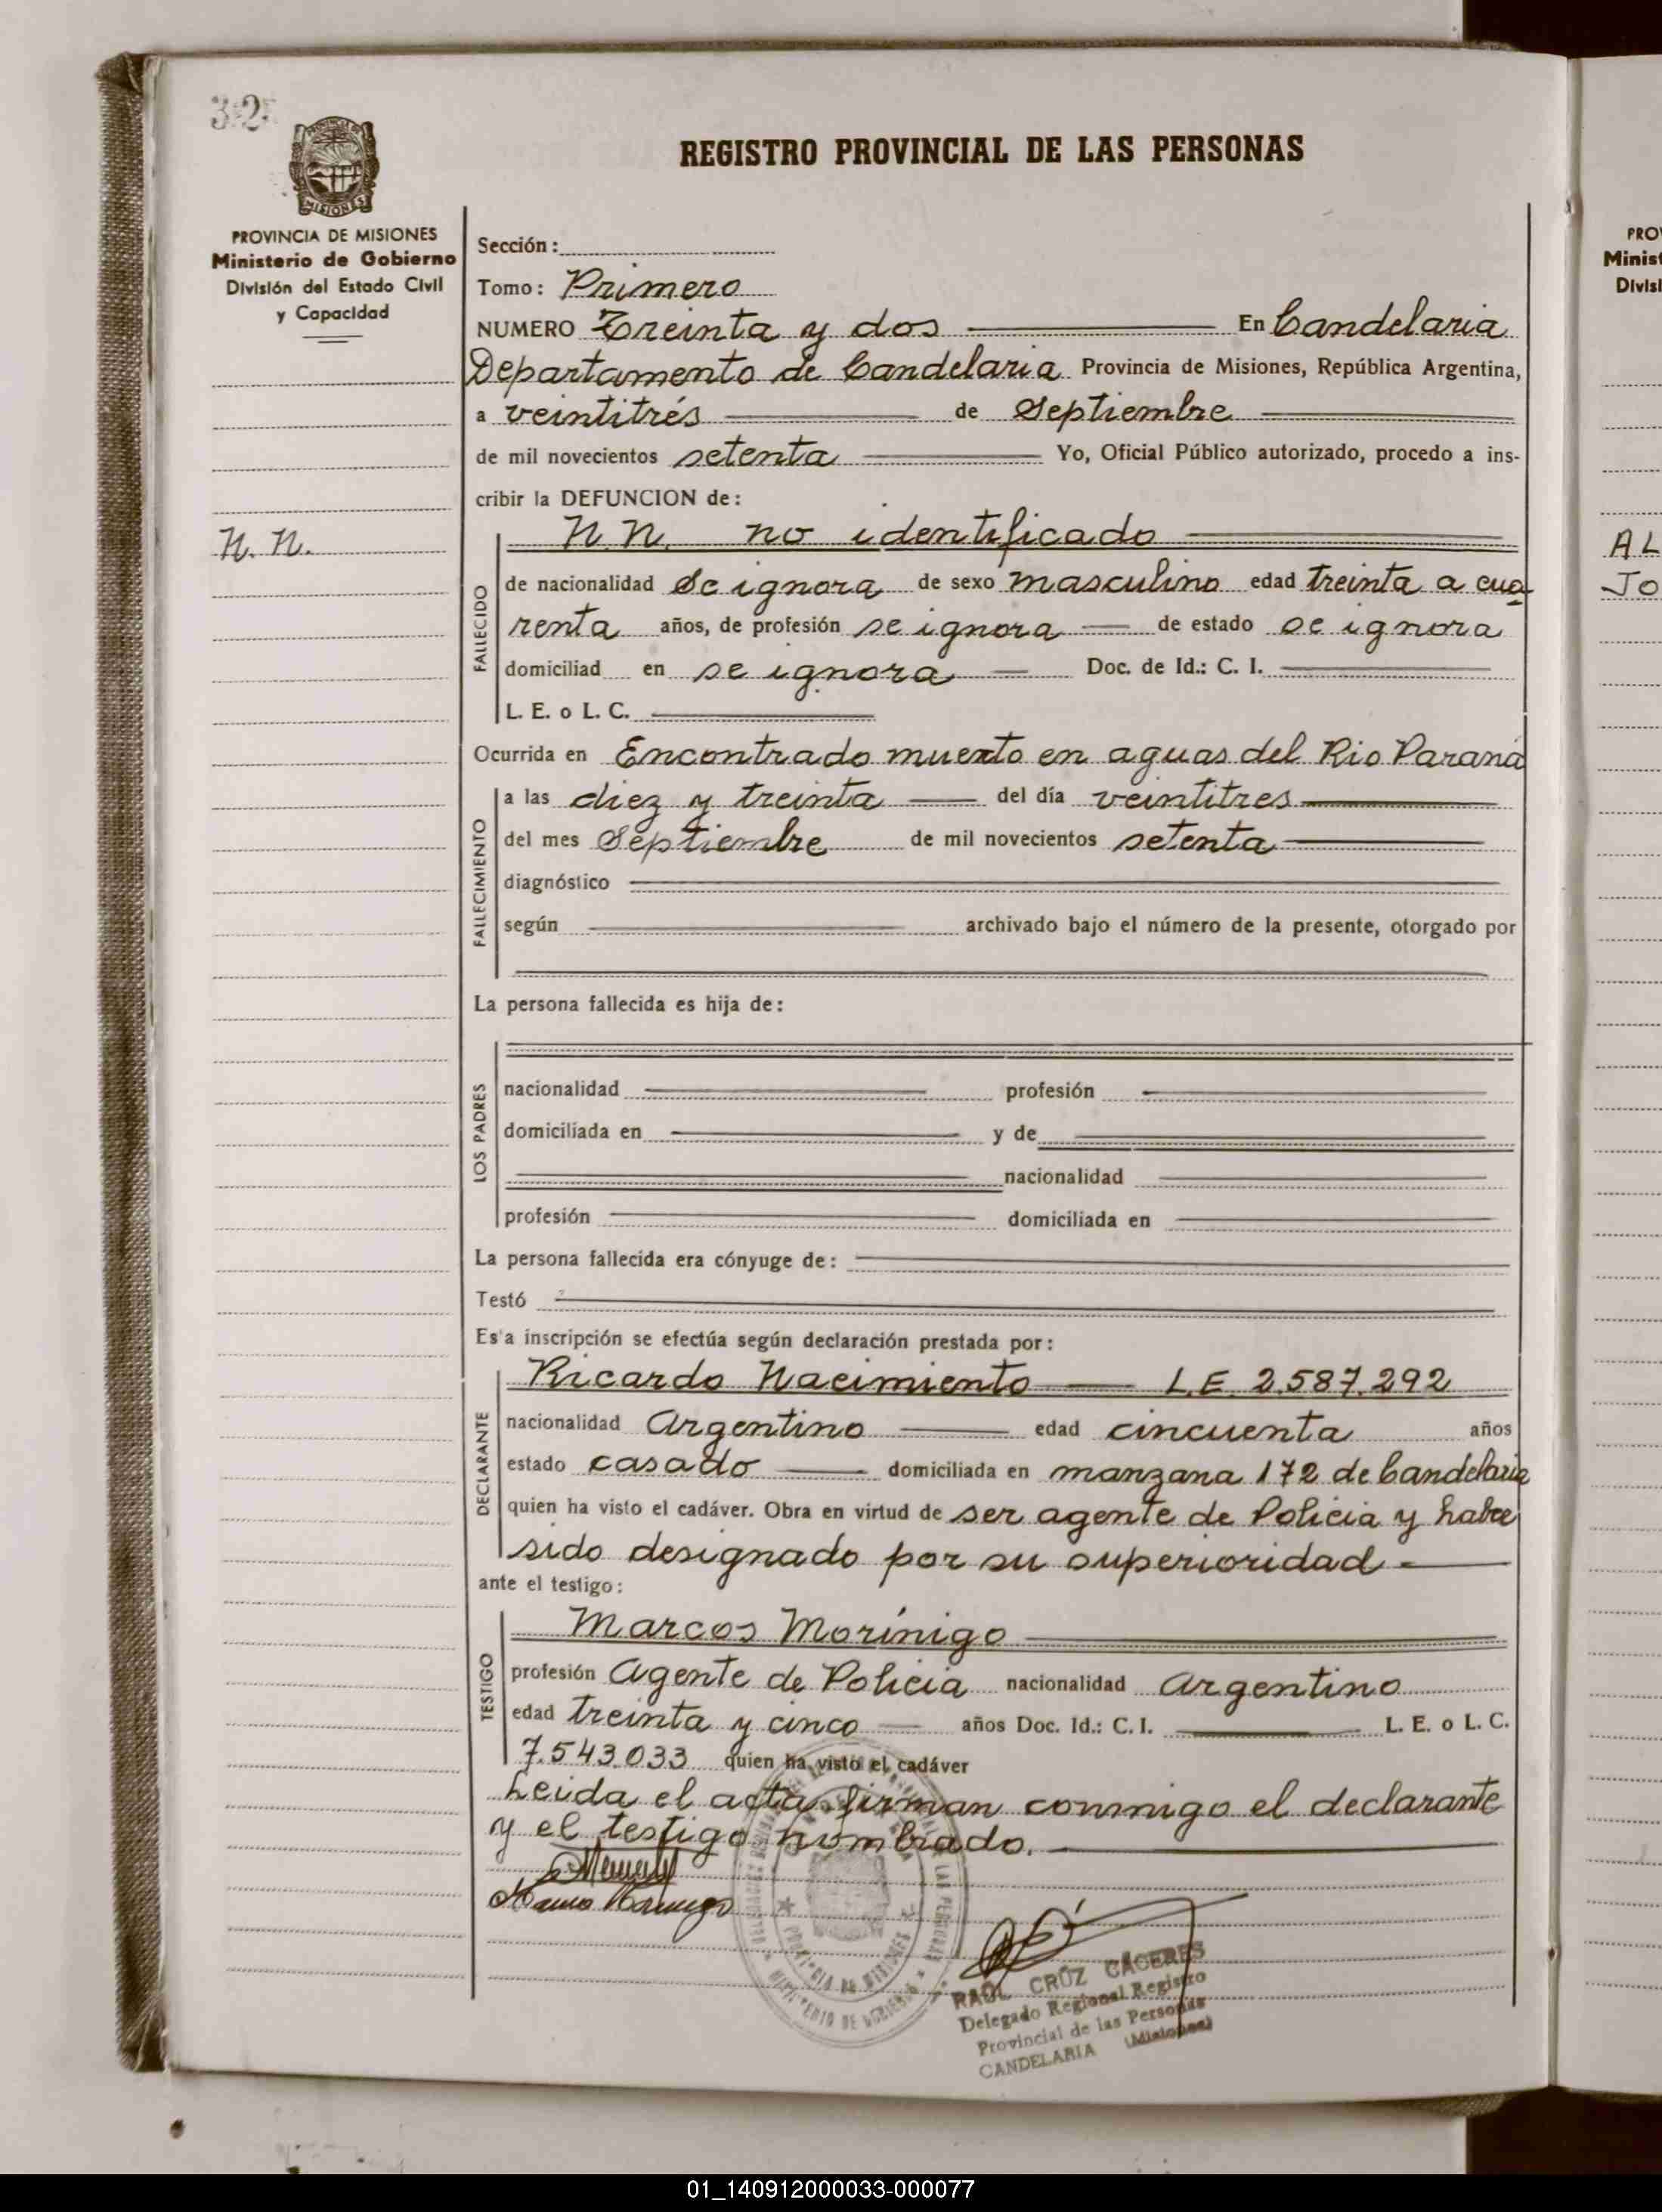 32
REGISTRO PROVINCIAL DE LAS PERSONAS
MISIONES
PROVINCIA DE MISIONES
Ministerio de Gobierno
División del Estado Civil
y Capacidad
Sección:
Tomo: Primero
NUMERO Treinta y dos En Candelaria
Departamento de Candelaria Provincia de Misiones, República Argentina,
a veintitrés de Septiembre
de mil novecientos setenta Yo, Oficial Público autorizado, procedo a ins-
cribir la DEFUNCION de:
N.N.
N.N. no identificado
FALLECIDO
de nacionalidad Se ignora de sexo masculino edad treinta a cua-
renta años, de profesión se ignora de estado se ignora
domiciliad en se ignora Doc. de Id.: C. I.
L. E. o L. C.
Ocurrida en Encontrado muerto en aguas del Rio Paraná
FALLECIMIENTO
a las diez y treinta del día veintitres
del mes Septiembre de mil novecientos setenta
diagnóstico
según archivado bajo el número de la presente, otorgado por
La persona fallecida es hija de:
LOS PADRES
nacionalidad profesión
domiciliada en y de
nacionalidad
profesión domiciliada en
La persona fallecida era cónyuge de:
Testó
Es a inscripción se efectúa según declaración prestada por:
DECLARANTE
Ricardo Nacimiento L.E. 2.587.292
nacionalidad Argentino edad cincuenta años
estado casado domiciliada en manzana 172 de Candelaria
quien ha visto el cadáver. Obra en virtud de ser agente de Policia y haber
sido designado por su superioridad
ante el testigo:
TESTIGO
Marcos Morínigo
profesión Agente de Policia nacionalidad Argentino
edad treinta y cinco años Doc. Id.: C. I. L. E. o L. C.
7.543.033 quien ha visto el cadáver
Leida el acta firman conmigo el declarante
y el testigo nombrado.
RAUL CRUZ CACERES
Delegado Regional Registro
Provincial de las Personas
CANDELARIA (Misiones)
PROVINCIA DE MISIONES
MINISTERIO DE GOBIERNO
PRO
Minist
Divisi
AL
JO
01_140912000033-000077